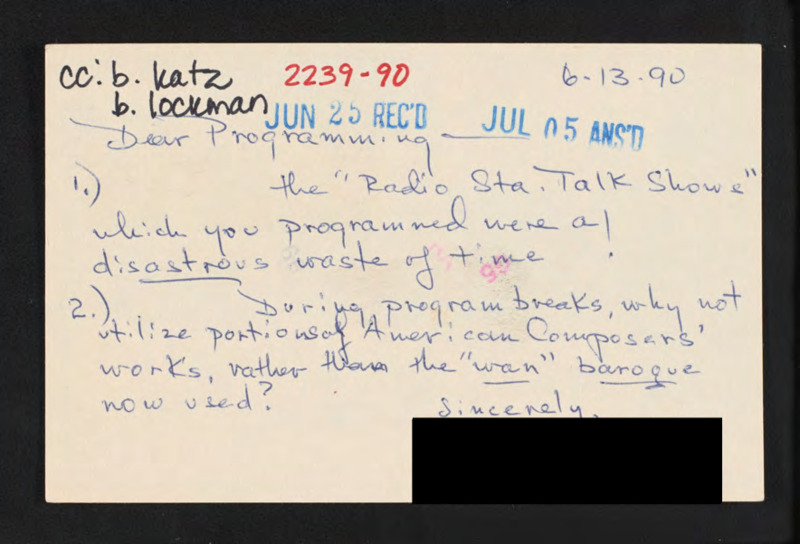 cc: b. katz 2239-90 6-13-90
b. lockman JUN 25 REC'D JUL 05 ANS'D
Dear Programming
1.) the "Radio Sta. Talk Shows"
which you programmed were a
disastrous waste of time!
2.) During program breaks, why not
utilize portions of American Composers'
works, rather than the "wan" baroque
now used?
Sincerely,